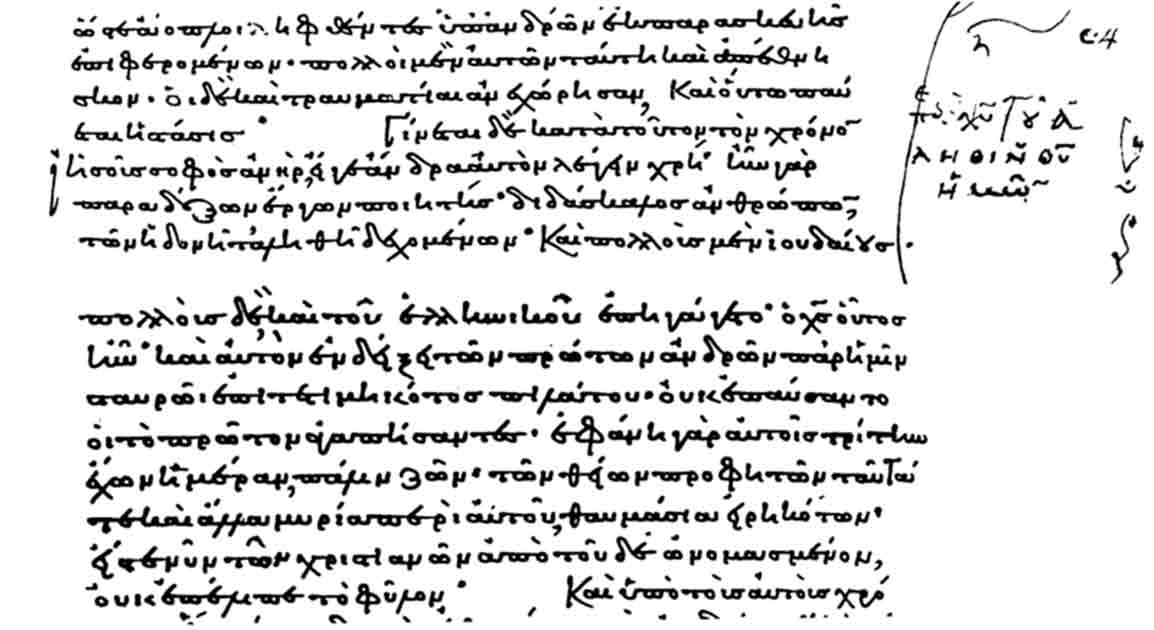 ὥστε ἄοπλοι ληφθέντες ὑπ' ἀνδρῶν ἐκ παρασκευῆς
ἐπιφερομένων· πολλοὶ μὲν αὐτῶν ταύτη καὶ ἀπέθνη
σκον· οἱ δὲ καὶ τραυματίαι ἀνεχώρησαν, Καὶ οὕτω παύ
εται ἡ στάσις· Γίνεται δὲ κατὰ τοῦτον τὸν χρόνο̅
ἰησοῦς σοφὸς ἀνὴρ, εἴγε ἄνδρα αὐτὸν λέγειν χρή· ἦν γὰρ
παραδόξων ἔργων ποιητής· διδάσκαλος ἀνθρώπω̅,
τῶν ἡδονῆ τἀληθῆ δεχομένων· Καὶ πολλοὺς μὲν ἰουδαίους·
πολλοὺς δὲ καὶ τοῦ ἑλληνικοῦ ἐπηγάγετο· ὁ χ̅ς̅ οὗτος
ἦν· καὶ αὐτὸν ἐνδείξει τῶν πρώτων ἀνδρῶν παρ' ἡμῖν
σταυρῶι ἐπιτετιμηκότος πιλάτου· οὐκ ἐπαύσαντο
οἱ τὸ πρῶτον ἀγαπήσαντες· ἐφάνη γὰρ αὐτοῖς τρίτην
ἔχων ἡμέραν, πάλιν ζῶν· τῶν θείων προφητῶν ταῦτά
τε καὶ ἄλλα μυρία περὶ αὐτοῦ, θαυμάσια εἰρηκότων·
εἴς τε νῦν τῶν χριστιανῶν ἀπὸ τοῦδε ὠνομασμένον,
οὐκ ἐπέλιπε τὸ φῦλον· Καὶ ὑπὸ τοὺς αὐτοὺς χρό
χ̅υ̅ τοῦ ἀ
ληθινοῦ θ̅υ̅
ἡμῶ̅